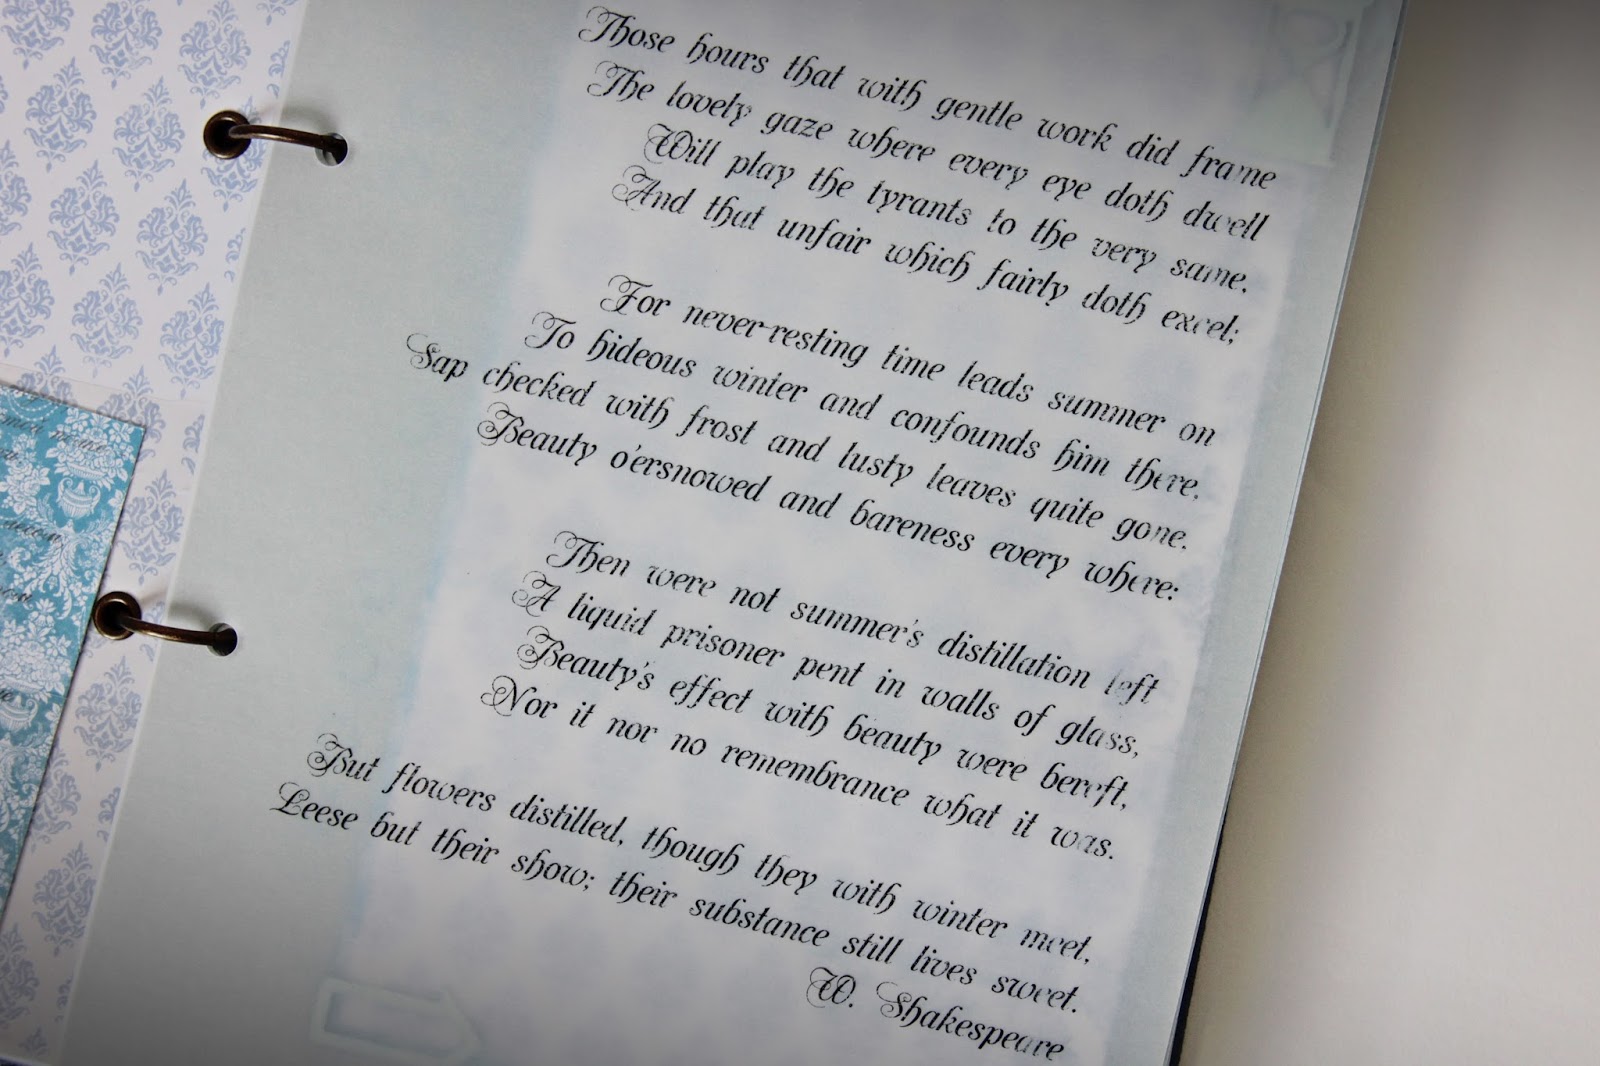 Those hours that with gentle work did frame
The lovely gaze where every eye doth dwell
Will play the tyrants to the very same,
And that unfair which fairly doth excel;
For never-resting time leads summer on
To hideous winter and confounds him there,
Sap checked with frost and lusty leaves quite gone,
Beauty o'ersnowed and bareness every where:
Then were not summer's distillation left
A liquid prisoner pent in walls of glass,
Beauty's effect with beauty were bereft,
Nor it nor no remembrance what it was.
But flowers distilled, though they with winter meet,
Leese but their show; their substance still lives sweet.
W. Shakespeare